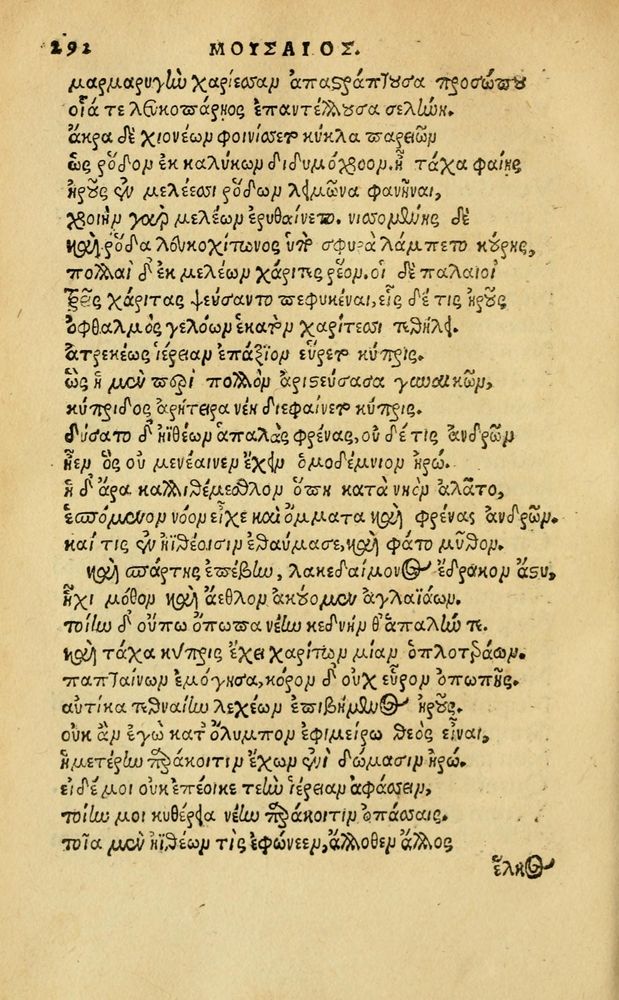 292 ΜΟΥΣΑΙΟΣ.
μαρμαρυγὴν χαρίεσσαν ἀπαστράπτουσα προσώπου
οἷά τε λευκοπάρῃος ἐπαντέλλουσα σελήνη.
ἄκρα δὲ χιονέων φοινίσσετο κύκλα παρειῶν
ὡς ῥόδον ἐκ καλύκων διδυμόχροον. ἦ τάχα φαίης
ἡροῦς ἐν μελέεσσι ῥόδων λειμῶνα φανῆναι,
χροιὴν γὰρ μελέων ἐρυθαίνετο. νισσομένης δὲ
καὶ ῥόδα λευκοχίτωνος ὑπὸ σφυρὰ λάμπετο κούρης,
πολλαὶ δ' ἐκ μελέων χάριτες ῥέον. οἱ δὲ παλαιοὶ
τρεῖς χάριτας ψεύσαντο πεφυκέναι, εἷς δέ τις ἡροῦς
ὀφθαλμὸς γελόων ἑκατὸν χαρίτεσσι τεθήλει.
ἀτρεκέως ἱέρειαν ἐπάξιον εὕρετο κύπρις.
ὣς ἡ μὲν περὶ πολλὸν ἀριστεύσασα γυναικῶν,
κύπριδος ἀρήτειρα νέη διεφαίνετο κύπρις.
δύσατο δ' ἠϊθέων ἁπαλὰς φρένας, οὐ δέ τις ἀνδρῶν
ἦεν ὃς οὐ μενέαινεν ἔχειν ὁμοδέμνιον ἡρώ.
ἡ δ' ἄρα καλλιθέμεθλον ὅπη κατὰ νηὸν ἀλᾶτο,
ἑσπόμενον νόον εἶχε καὶ ὄμματα καὶ φρένας ἀνδρῶν.
καί τις ἐν ἠϊθέοισιν ἐθαύμασε, καὶ φάτο μῦθον.
καὶ σπάρτης ἐπέβην, λακεδαίμονος ἔδρακον ἄστυ,
ἧχι μόθον καὶ ἄεθλον ἀκούομεν ἀγλαϊάων.
τοίην δ' οὔπω ὄπωπα νέην κεδνήν θ' ἁπαλήν τε.
καὶ τάχα κύπρις ἔχει χαρίτων μίαν ὁπλοτεράων.
παπταίνων ἐμόγησα, κόρον δ' οὐχ εὗρον ὀπωπῆς.
αὐτίκα τεθναίην λεχέων ἐπιβήμενος ἡροῦς.
οὐκ ἂν ἐγὼ κατ' ὄλυμπον ἐφιμείρω θεὸς εἶναι,
ἡμετέρην παράκοιτιν ἔχων ἐνὶ δώμασιν ἡρώ.
εἰ δέ μοι οὐκ ἐπέοικε τεὴν ἱέρειαν ἀφάσσειν,
τοίην μοι κυθέρεια νέην παράκοιτιν ὀπάσσαις.
τοῖα μὲν ἠϊθέων τὶς ἐφώνεεν, ἄλλοθεν ἄλλος
ἕλκος